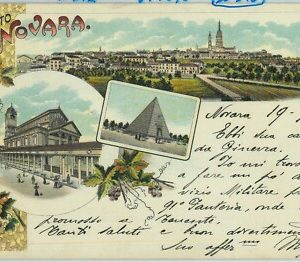 TO
NOVARA.
Novara, 19-
Ebbi sua ca
da Ginevra.
Io mi tro
a fare un po' d
vizio Militare p
91° Fanteria, onde
promosso a Tenente.
Tanti saluti e buon divertimento
Suo affer